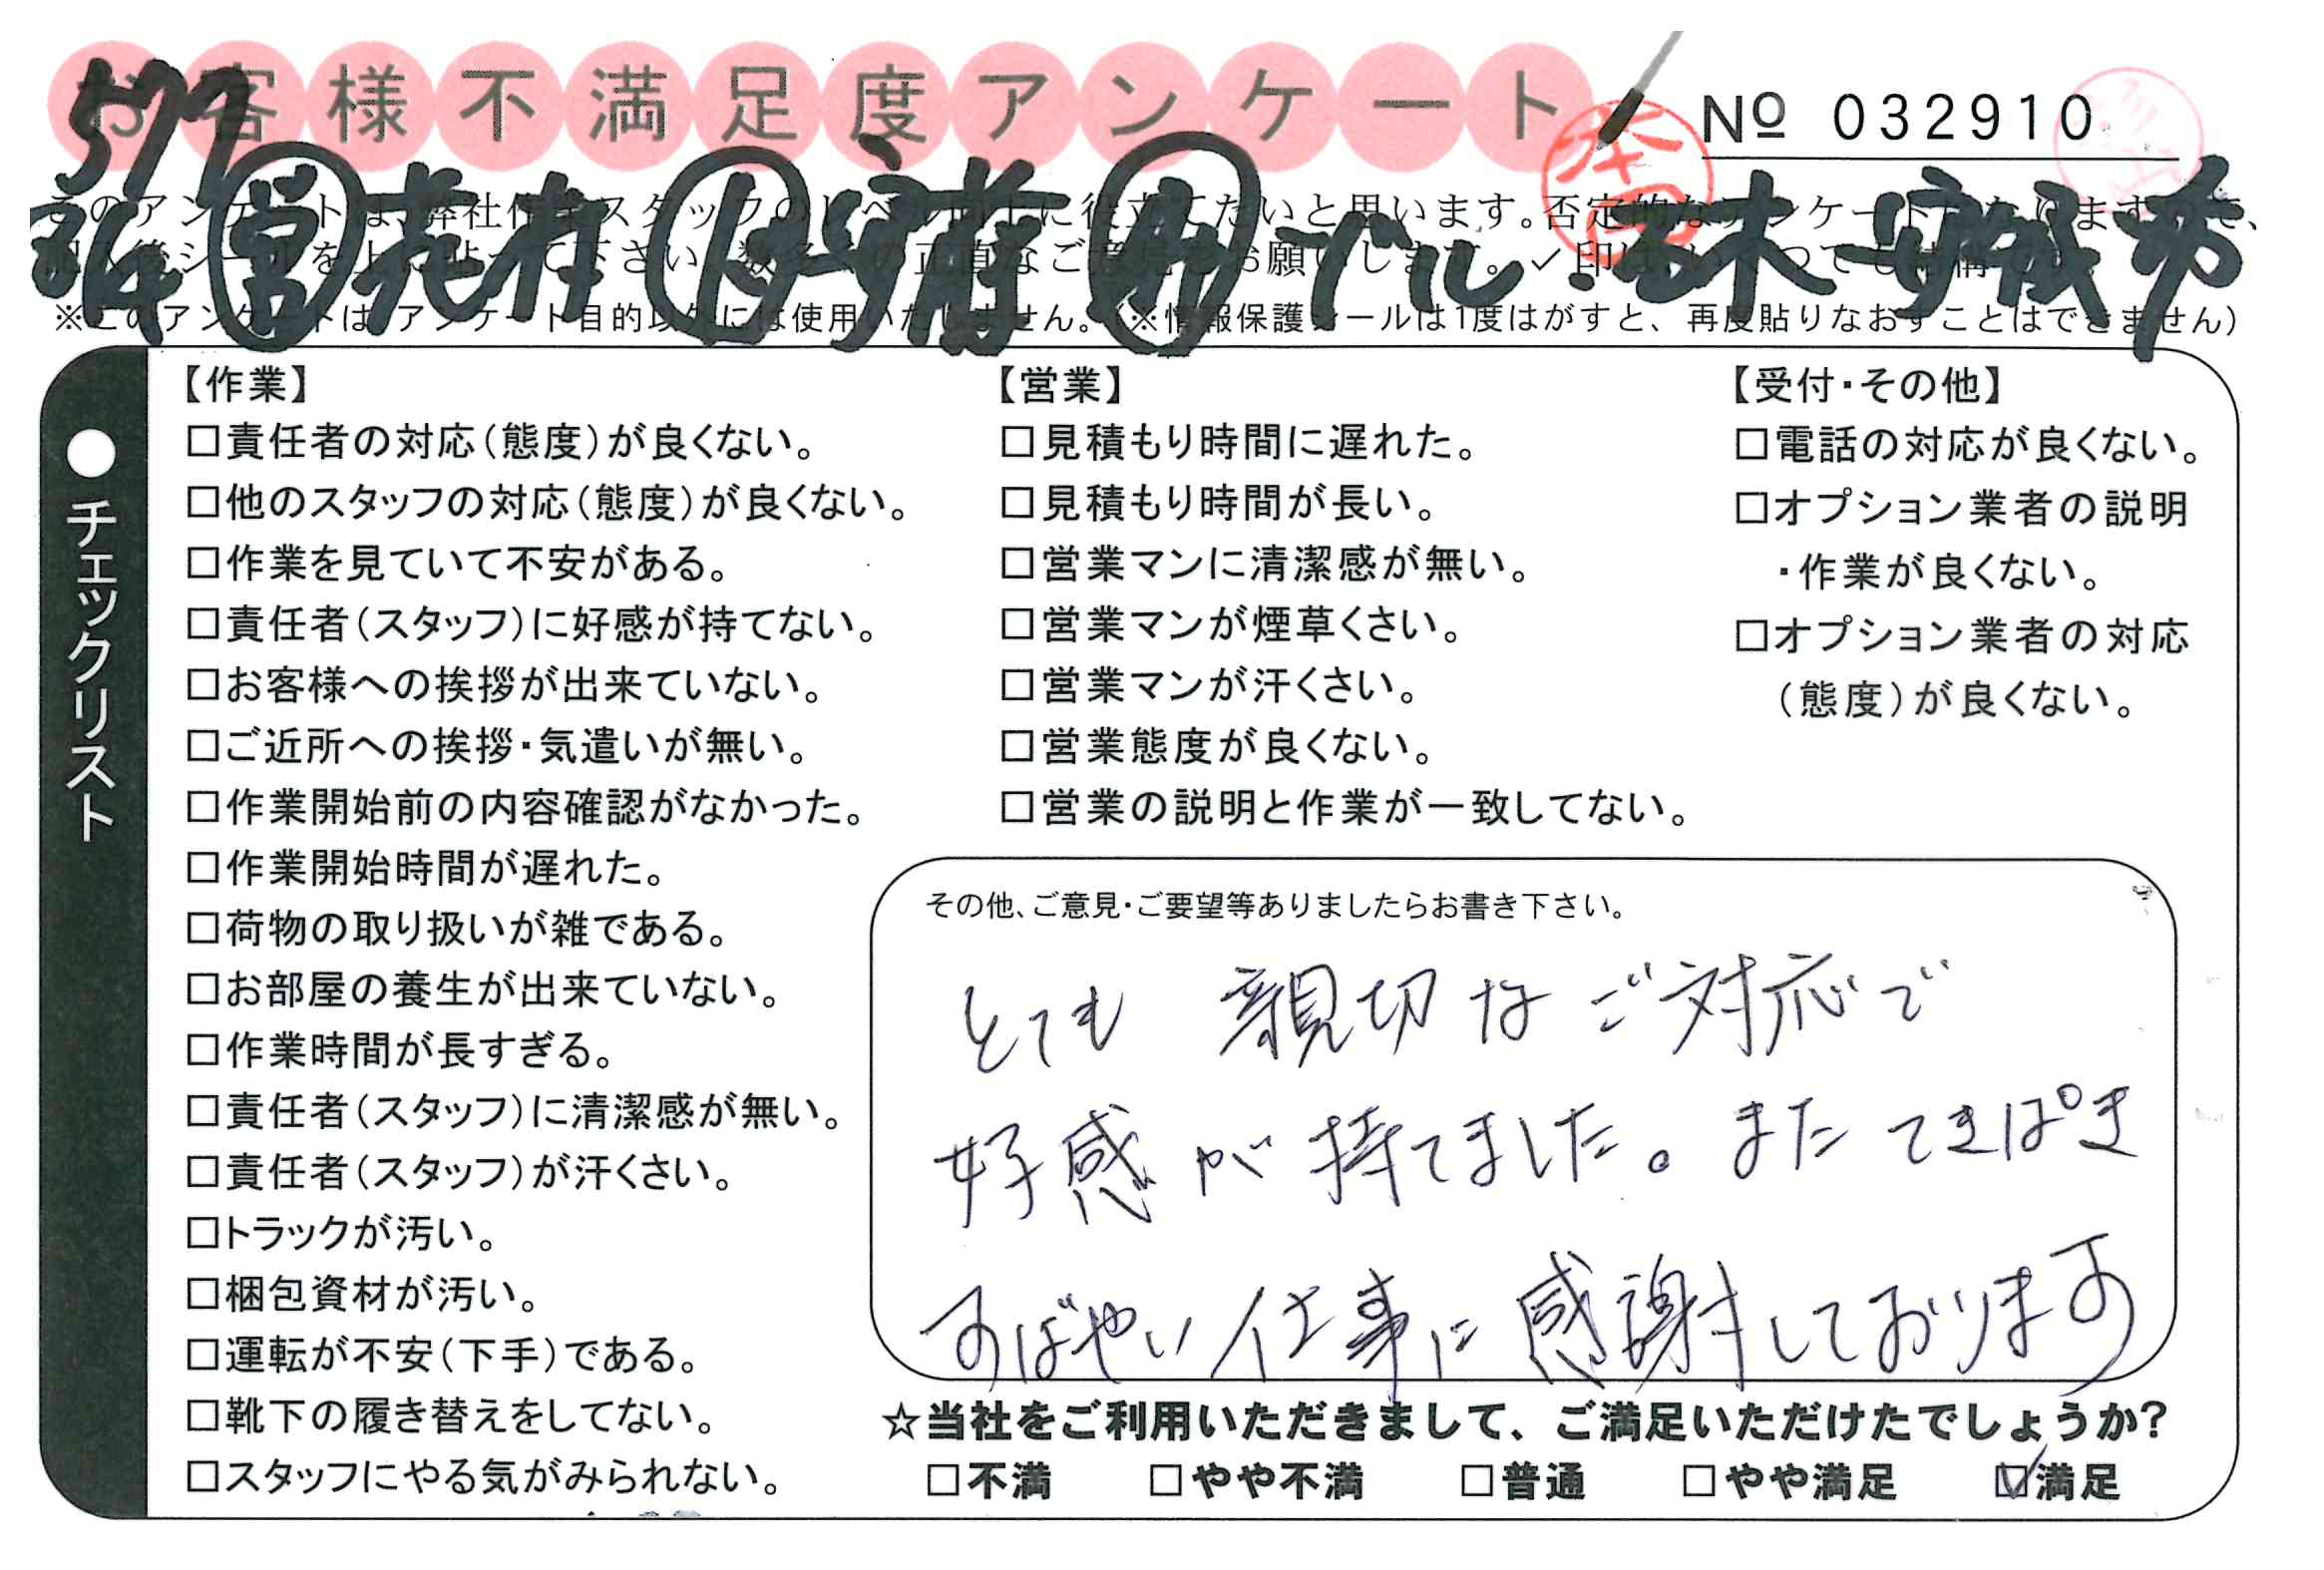 お客様不満足度アンケート
№ 032910
5/7
営 ト 安城市
※このアンケートは、アンケート目的以外には使用いたしません。(※情報保護シールは1度はがすと、再度貼りなおすことはできません)
●チェックリスト
【作業】
□責任者の対応(態度)が良くない。
□他のスタッフの対応(態度)が良くない。
□作業を見ていて不安がある。
□責任者(スタッフ)に好感が持てない。
□お客様への挨拶が出来ていない。
□ご近所への挨拶・気遣いが無い。
□作業開始前の内容確認がなかった。
□作業開始時間が遅れた。
□荷物の取り扱いが雑である。
□お部屋の養生が出来ていない。
□作業時間が長すぎる。
□責任者(スタッフ)に清潔感が無い。
□責任者(スタッフ)が汗くさい。
□トラックが汚い。
□梱包資材が汚い。
□運転が不安(下手)である。
□靴下の履き替えをしてない。
□スタッフにやる気がみられない。
【営業】
□見積もり時間に遅れた。
□見積もり時間が長い。
□営業マンに清潔感が無い。
□営業マンが煙草くさい。
□営業マンが汗くさい。
□営業態度が良くない。
□営業の説明と作業が一致してない。
【受付・その他】
□電話の対応が良くない。
□オプション業者の説明
・作業が良くない。
□オプション業者の対応
(態度)が良くない。
その他、ご意見・ご要望等ありましたらお書き下さい。
とても 親切なご対応で
好感が持てました。また てきぱき
すばやい仕事に感謝しております
☆当社をご利用いただきまして、ご満足いただけたでしょうか?
□不満 □やや不満 □普通 □やや満足 ☑満足